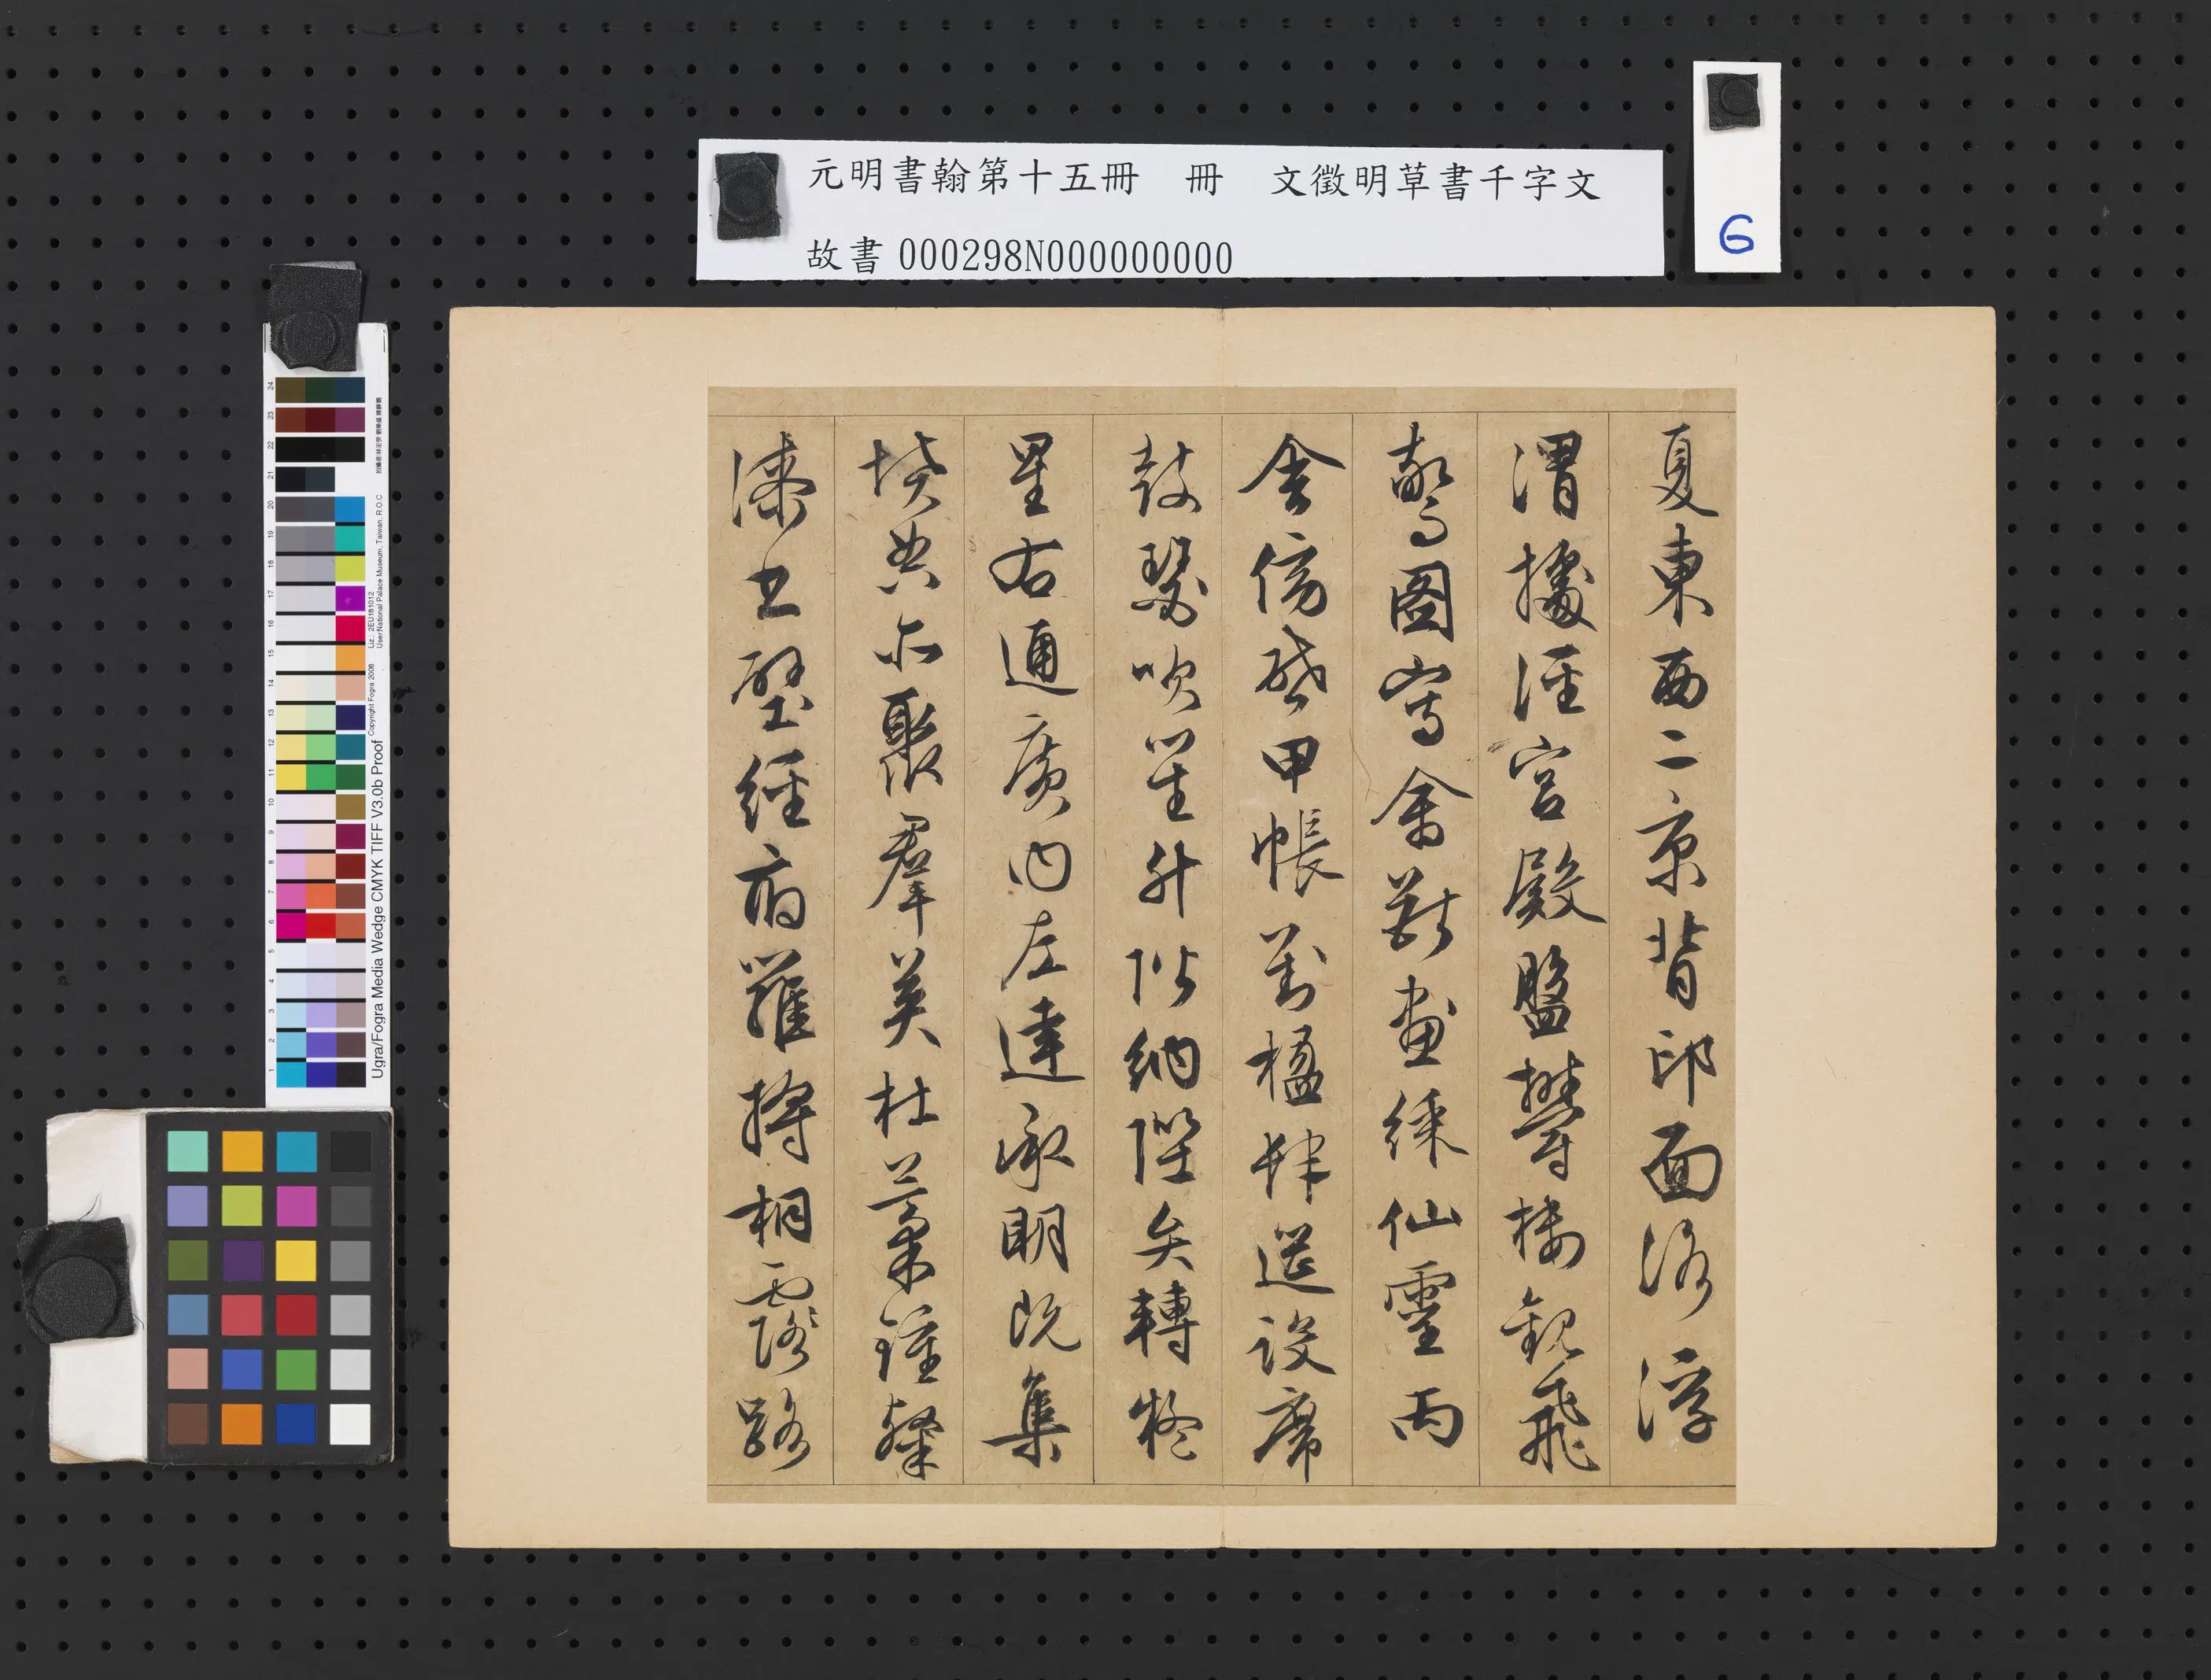 元明書翰第十五冊　冊　文徵明草書千字文
故書000298N000000000
6
夏東西二京背邙面洛浮
渭據涇宮殿盤鬱樓觀飛
驚圖寫禽獸畫綵仙靈丙
舍傍啓甲帳對楹肆筵設席
鼓瑟吹笙升階納陛弁轉疑
星右通廣內左達承明既集
墳典亦聚羣英杜藁鍾隸
漆書壁經府羅將相露路
Ugra/Fogra Media Wedge CMYK TIFF V3.0b Proof
Copyright Fogra 2008
Liz.: 2EU181012
User:National Palace Museum, Taiwan, R.O.C